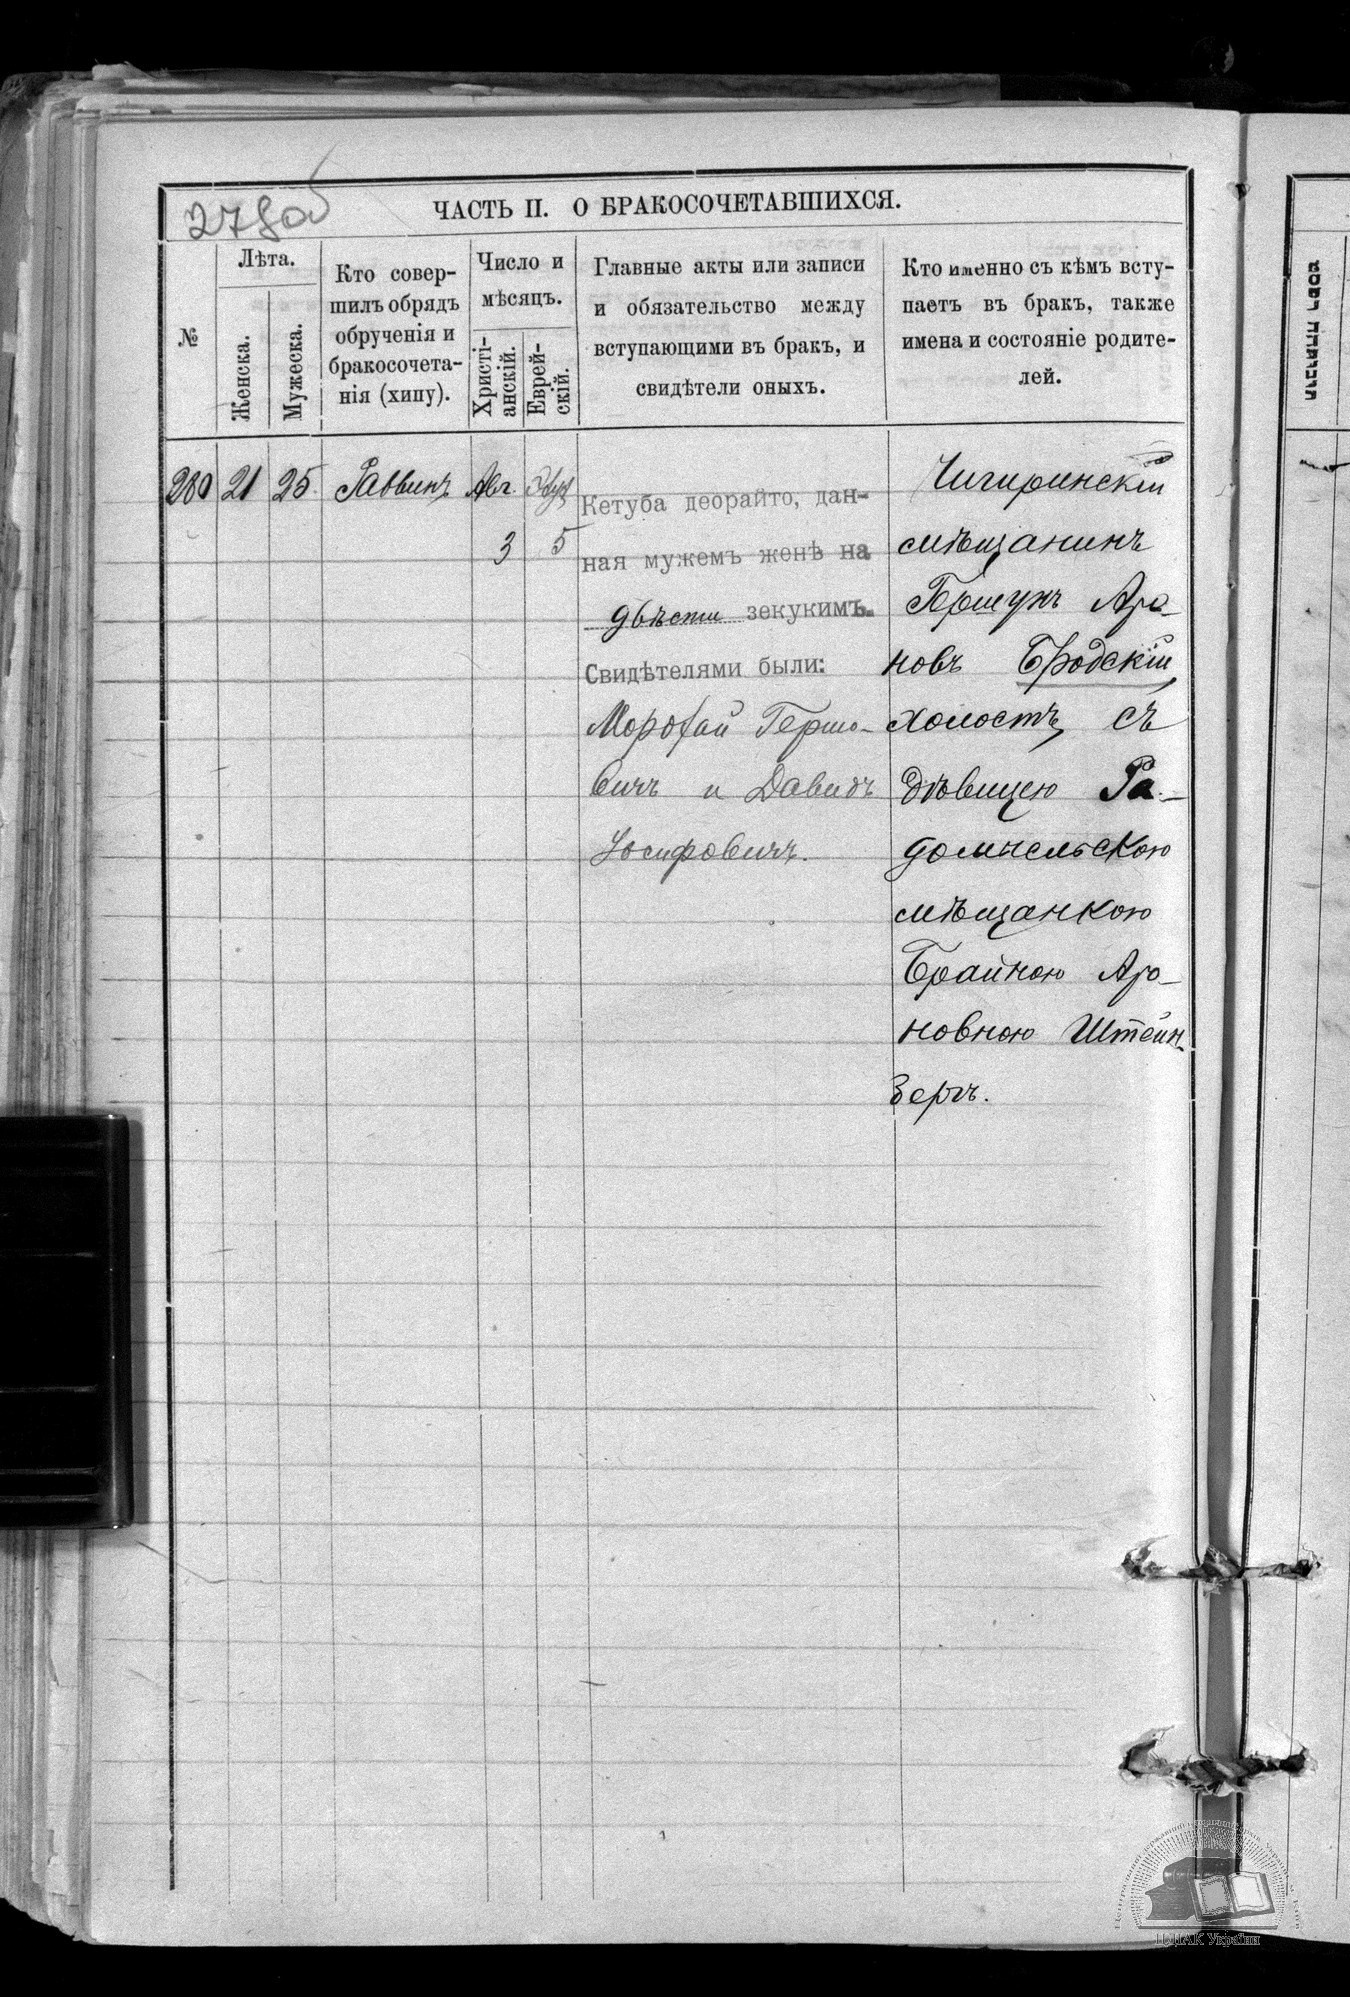 278об
ЧАСТЬ II. О БРАКОСОЧЕТАВШИХСЯ.
№
Лѣта.
Женска.
Мужеска.
Кто совер-
шилъ обрядъ
обрученія и
бракосочета-
нія (хипу).
Число и
мѣсяцъ.
Христі-
анскій.
Еврей-
скій.
Главные акты или записи
и обязательство между
вступающими въ брак, и
свидѣтели оныхъ.
Кто именно съ кѣмъ всту-
паетъ въ бракъ, также
имена и состояніе родите-
лей.
280 21 25 Раввинъ Авг.
3 5
Кетуба деорайто, дан-
ная мужемъ женѣ на
двѣсти зекукимъ.
Свидѣтелями были:
Мордхай Гершо-
вичъ и Давидъ
Іосифовичъ.
Чигиринскій
мѣщанинъ
Гершунъ Аро-
новъ Бродскій,
холостъ, съ
дѣвицею Ра-
домысльскою
мѣщанкою
Брайною Аро-
новною Штейн-
бергъ.
ЦДІАК України